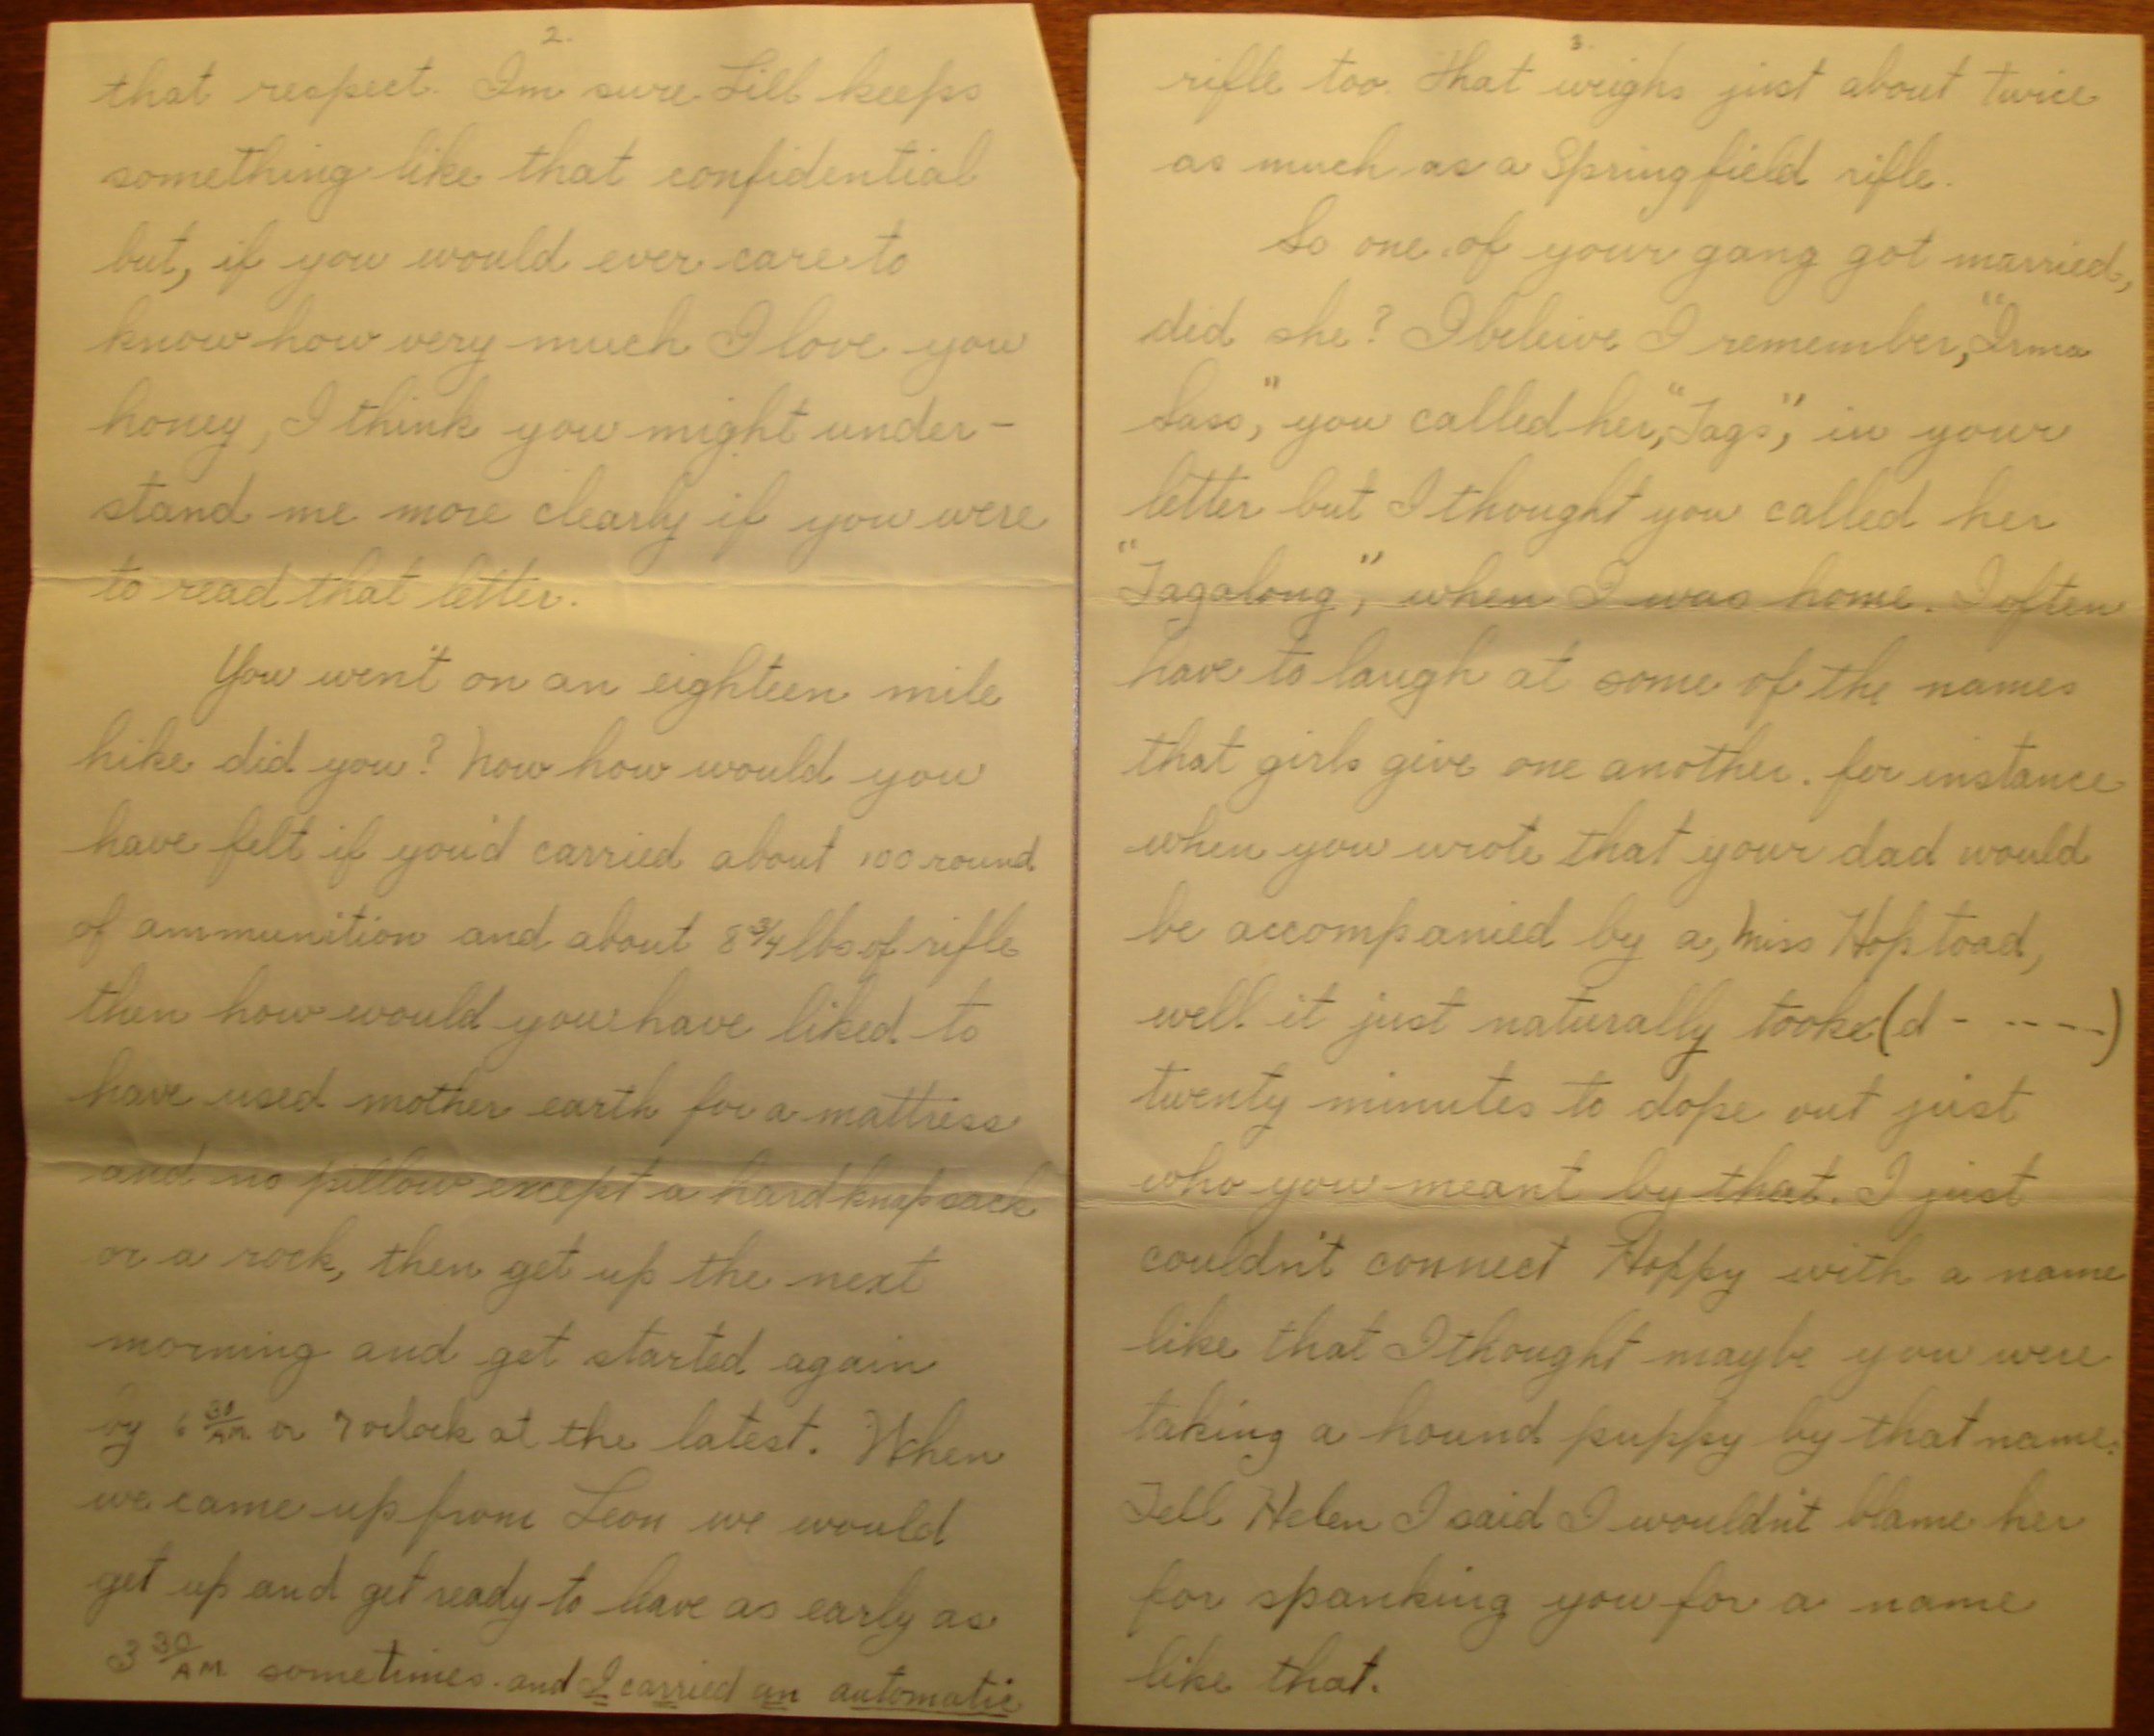 2.
that respect. Im sure Lill keeps
something like that confidential
but, if you would ever care to
know how very much I love you
honey, I think you might under-
stand me more clearly if you were
to read that letter.
You went on an eighteen mile
hike did you? Now how would you
have felt if you'd carried about 100 round
of ammunition and about 8 3/4 lbs of rifle
then how would you have liked to
have used mother earth for a mattress
and no pillow except a hard knapsack
or a rock, then get up the next
morning and get started again
by 6 30/AM or 7 oclock at the latest. When
we came up from Leon we would
get up and get ready to leave as early as
3 30/AM sometimes. and I carried an automatic
3.
rifle too. that weighs just about twice
as much as a Springfield rifle.
So one of your gang got married,
did she? I beleive I remember, "Irma
Sass," you called her, "Tags", in your
letter but I thought you called her
"Tagalong", when I was home. I often
have to laugh at some of the names
that girls give one another. for instance
when you wrote that your dad would
be accompanied by a, Miss Hoptoad,
well it just naturally tooke (d - -----)
twenty minutes to dope out just
who you meant by that. I just
couldn't connect Hoppy with a name
like that I thought maybe you were
taking a hound puppy by that name.
Tell Helen I said I wouldn't blame her
for spanking you for a name
like that.